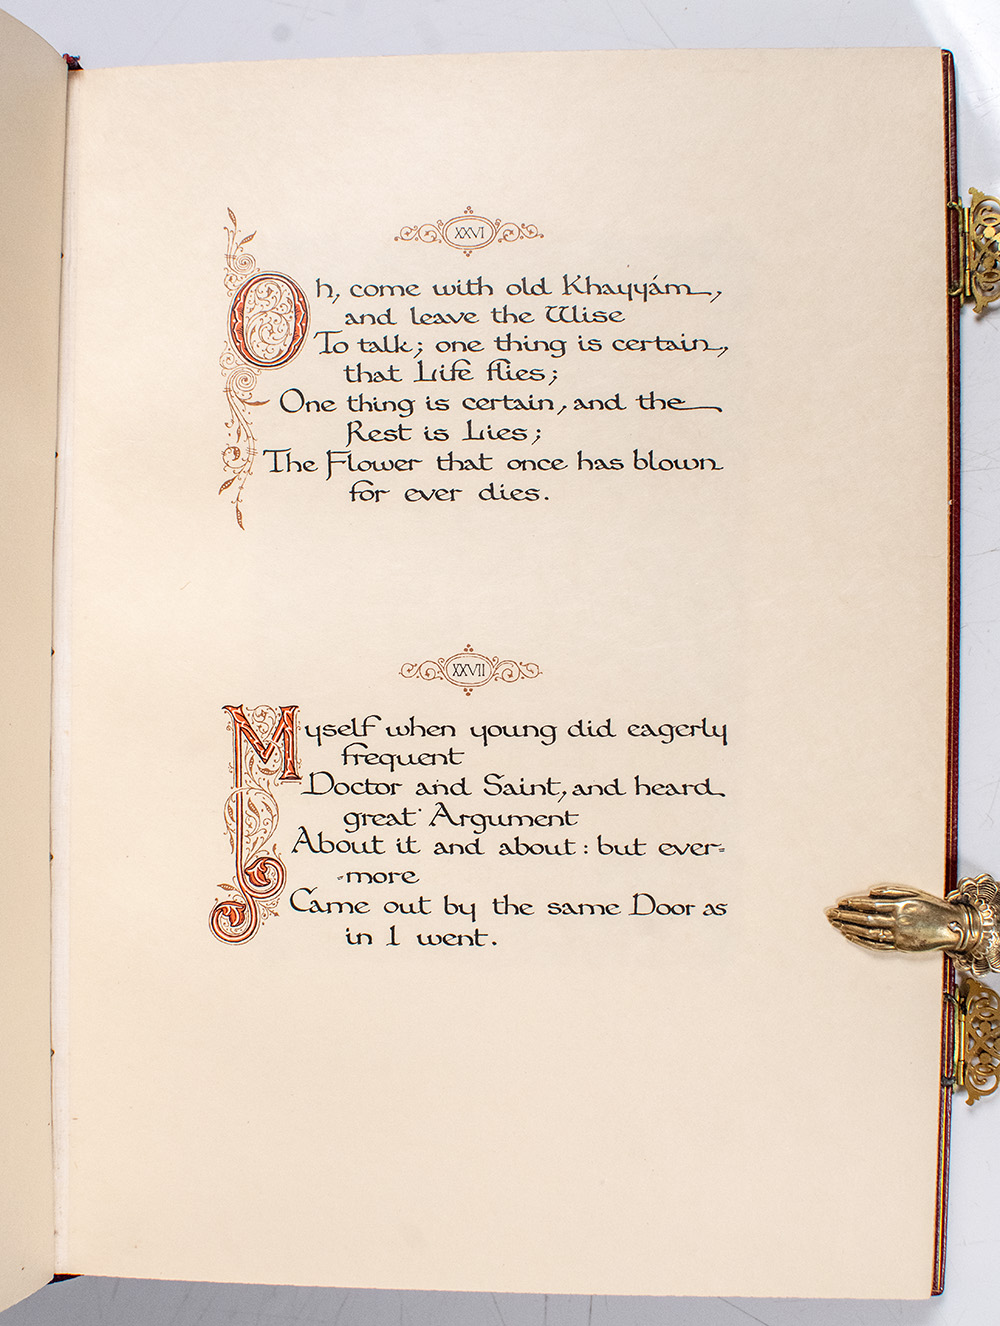 XXVI
Oh, come with old Khayyám,
and leave the Wise
To talk; one thing is certain,
that Life flies;
One thing is certain, and the
Rest is Lies;
The Flower that once has blown
for ever dies.
XXVII
Myself when young did eagerly
frequent
Doctor and Saint, and heard
great Argument
About it and about: but ever=
=more
Came out by the same Door as
in I went.